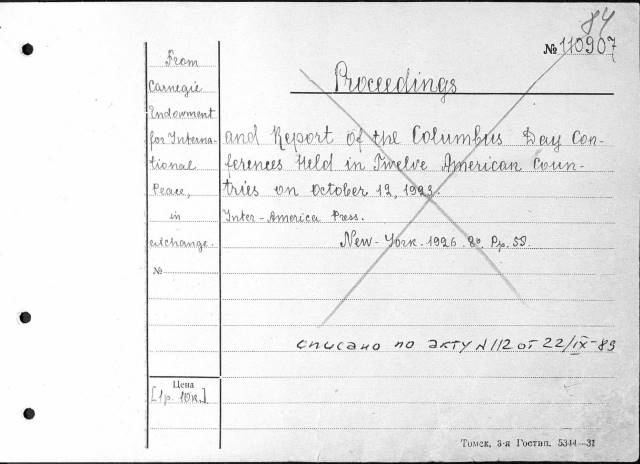 84
№ 110907
From
Carnegie
Endowment
for Interna-
tional
Peace,
in
exchange.
№
Proceedings
and Report of the Columbus Day Con-
ferences Held in Twelve American Coun-
tries on October 12, 1923.
Inter-America Press.
New-York. 1926. 8º. Pp. 53.
списано по акту №112 от 22/IX-83
Цена
[1р. 10к.]
Томск, 3-я Гостип. 5344—31